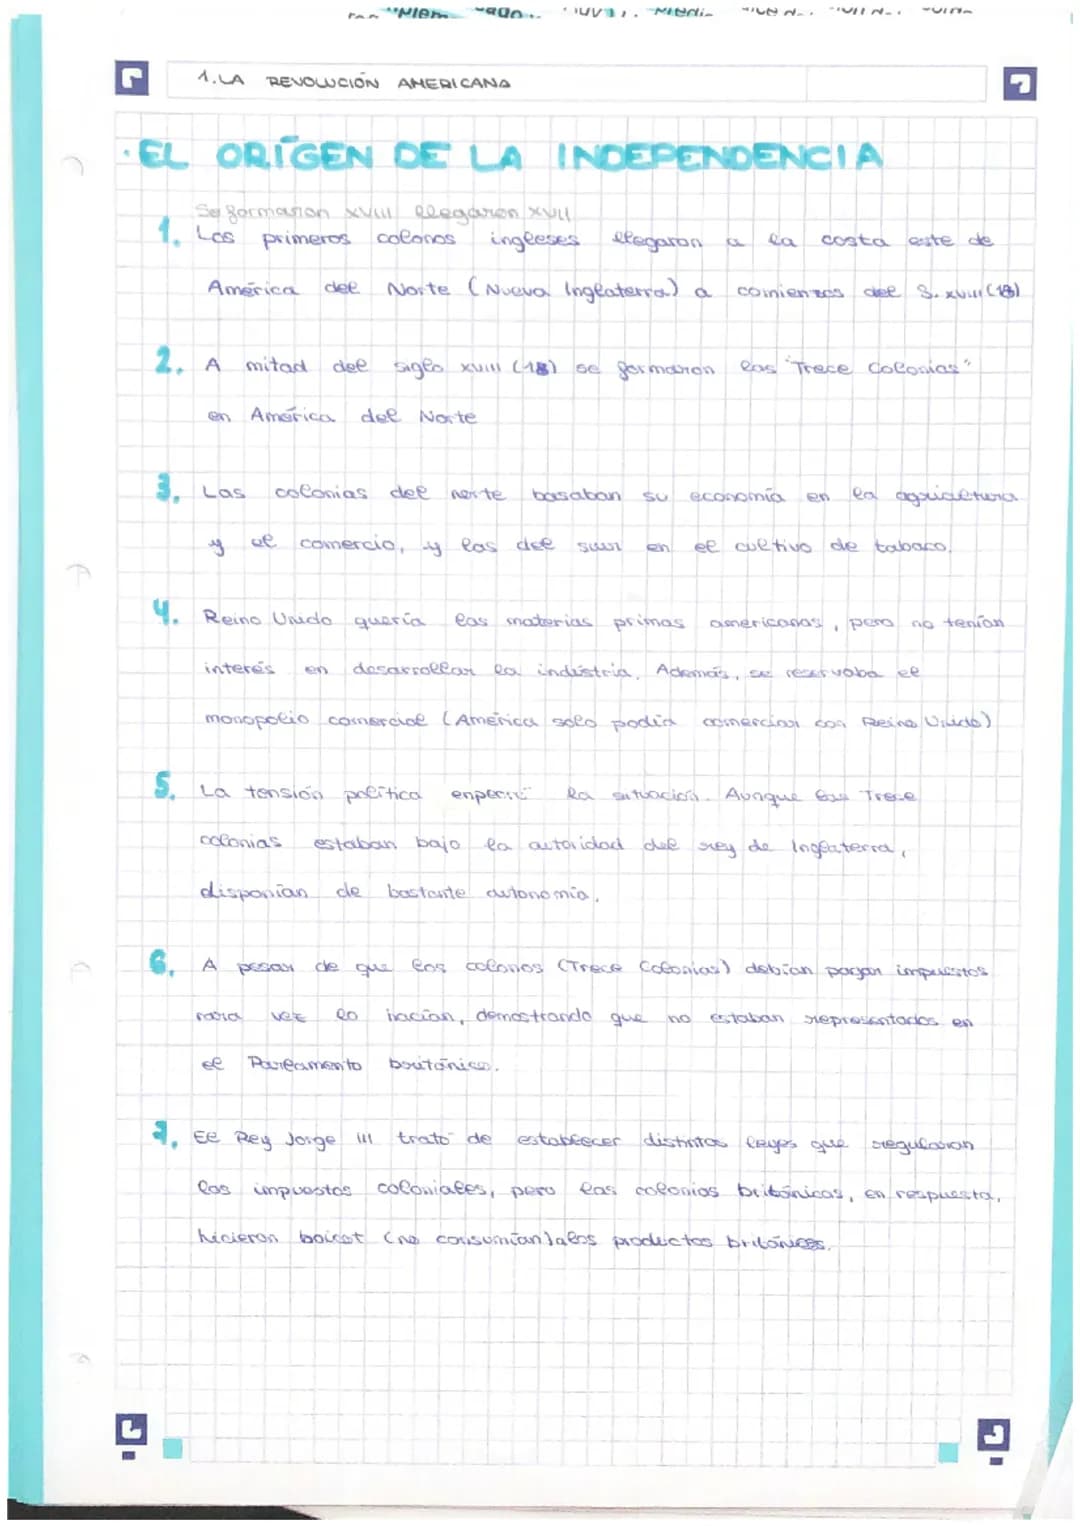 1. LA REVOLUCIÓN AMERICANA
· EL ORÍGEN DE LA INDEPENDENCIA
Se formaron XVIII llegaron XVII
1. Los primeros colonos ingleses llegaron a la costa este de
América del Norte (Nueva Inglaterra) a comienzos del S. XVIII (18)
2. A mitad del siglo XVIII (18) se formaron las "Trece Colonias"
en América del Norte
3. Las colonias del norte basaban su economía en la agricultura
y el comercio, y las del sur en el cultivo de tabaco.
4. Reino Unido quería las materias primas americanas, pero no tenían
interés en desarrollar la industria. Además, se reservaba el
monopolio comercial (América solo podía comerciar con Reino Unido)
5. La tensión política la situación. Aunque las Trece
colonias estaban bajo la autoridad del rey de Inglaterra,
disponían de bastante autonomía.
6. A pesar de que los colonos (Trece Colonias) debían pagar impuestos
rara vez lo hacían, demostrando que no estaban representados en
el Parlamento británico.
7. El Rey Jorge III trató de establecer distintas leyes que regularan
los impuestos coloniales, pero las colonias británicas, en respuesta,
hicieron boicot (no consumían) a los productos británicos.